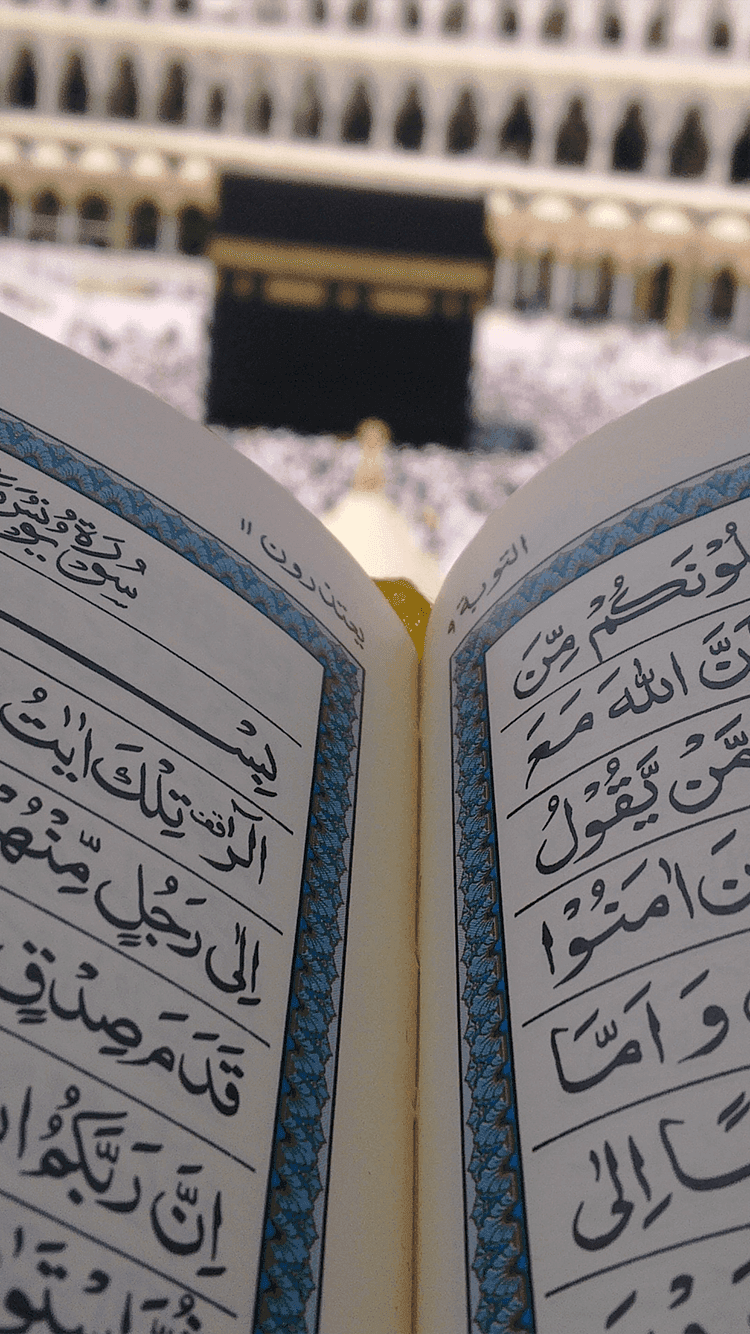 التوبة ٩
لُوْنَكُمْ مِّنَ
اَنَّ اللّٰهَ مَعَ
مَّنْ يَّقُوْلُ
نَ اٰمَنُوْا
وَ اَمَّا
سًا اِلٰى
يعتذرون ١١
سُوْرَةُ يُوْنُسَ
بِسْـ
الٓرٰ قف تِلْكَ اٰيٰتُ
اِلٰى رَجُلٍ مِّنْهُمْ
قَدَمَ صِدْقٍ
اِنَّ رَبَّكُمُ ا
ثُمَّ اسْتَوٰ